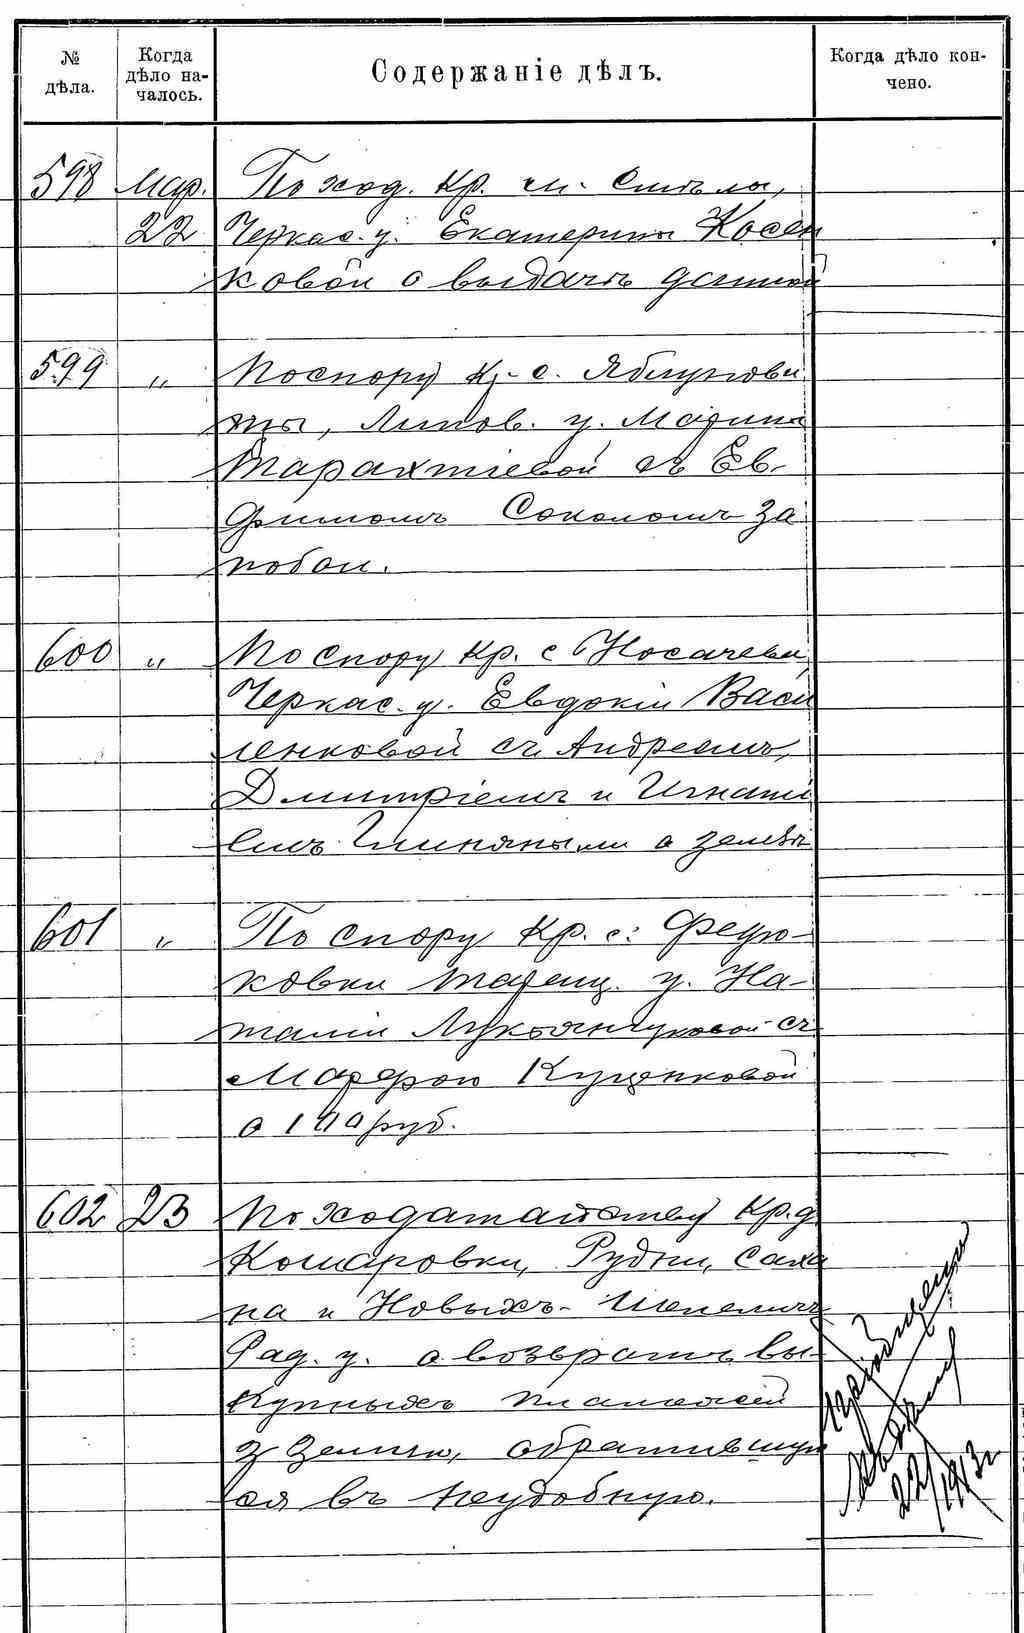 № дѣла.
Когда дѣло началось.
Содержаніе дѣлъ.
Когда дѣло кончено.
598 Мар. По ход. кр. м. Смѣлы,
22 Черкас. у. Екатерины Косен
ковой о выдачѣ данной
599 „ По спору кр. с. Яблунови
цы, Липов. у. Марины
Тарахтіевой съ Ев-
фимомъ Соколомъ за
побои.
600 „ По спору кр. с Носачева,
Черкас. у. Евдокіи Васи
ленковой съ Андреемъ,
Дмитріемъ и Игнаті
емъ Глиняными о землѣ
601 „ По спору кр. с. Федю-
ковки Таращ. у. На-
таліи Лукьянчуковой съ
Марфою Куценковой
о 100 руб.
602 23 По ходатайству кр. д.
Комаровки, Рудни,
на и Новыхъ-Шепеличъ
Рад. у. о возвратѣ вы-
купныхъ платежей
з землю, обратившую
ся въ неудобную.
22/ 1913 г